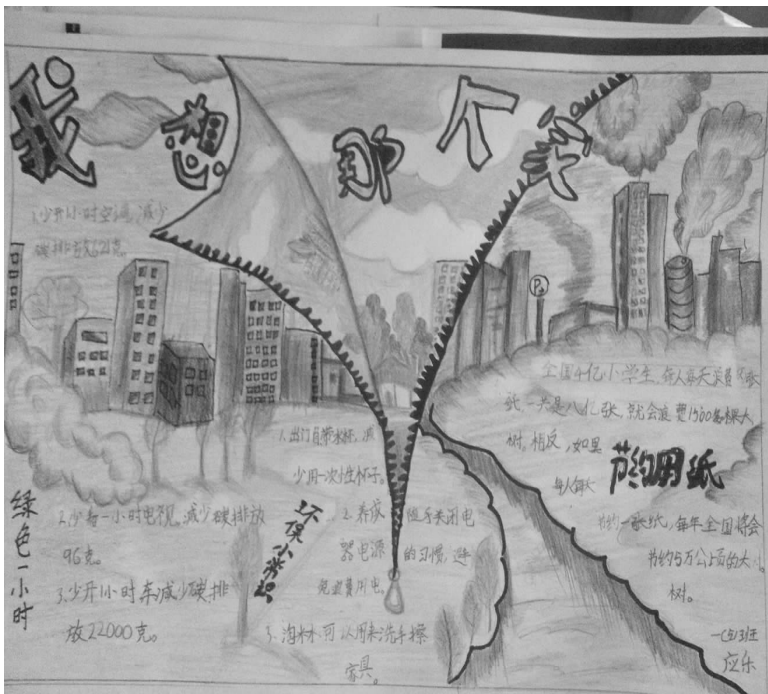 我想那个家
1.少开1小时空调,减少
碳排放621克。
绿色一小时
2.少看一小时电视,减少碳排放
96克。
3.少开1小时车减少碳排
放22000克。
环保小常识
1.出门自带水杯,减
少用一次性杯子。
2.养成随手关闭电
器电源的习惯,避
免浪费用电。
3.淘米水可以用来洗手擦
家具。
全国4亿小学生,每人每天浪费
纸,一共是八亿张,就会浪费1500多棵大
树。相反,如果
节约用纸
每人每天
节约一张纸,每年全国将会
节约5万公顷的大
树。
应乐